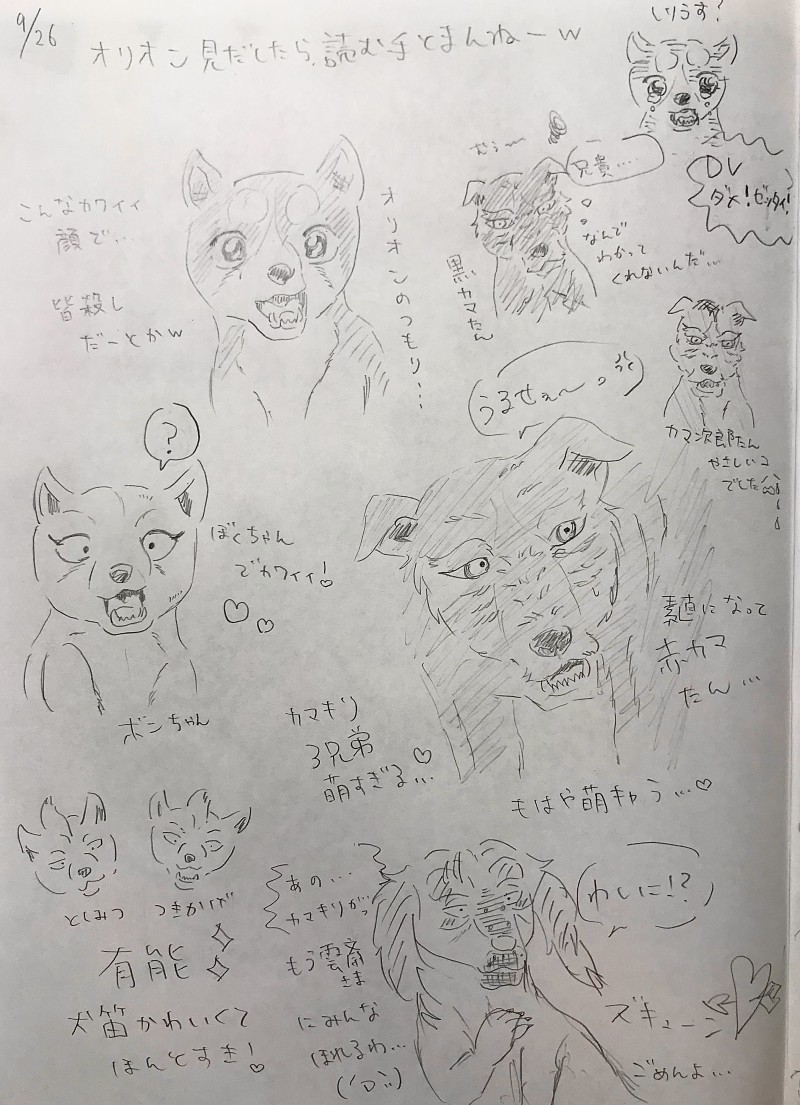 9/26
オリオン見だしたら、読む手とまんねーw
しりうす!
DV
ダメ!ゼッタイ!
むぅ〜
兄貴…
なんで
わかって
くれないんだ…
黒カマたん
こんなカワイイ
顔で…
皆殺し
だーとかw
オリオンのつもり…
カマ次郎たん
やさしいコ
でした
うるせぇ〜。
?
ぼくちゃん
でカワイイ!
ボンちゃん
素直になって
赤カマ
たん…
カマキリ
3兄弟
萌すぎる…
もはや萌キャラ…
としみつ
つきかげ
有能
犬笛かわいくて
ほんとすき!
あの…
カマキリがっ
もう雲斎
さま
にみんな
ほれるわ…
わいに!?
ズキューン
ごめんよ…